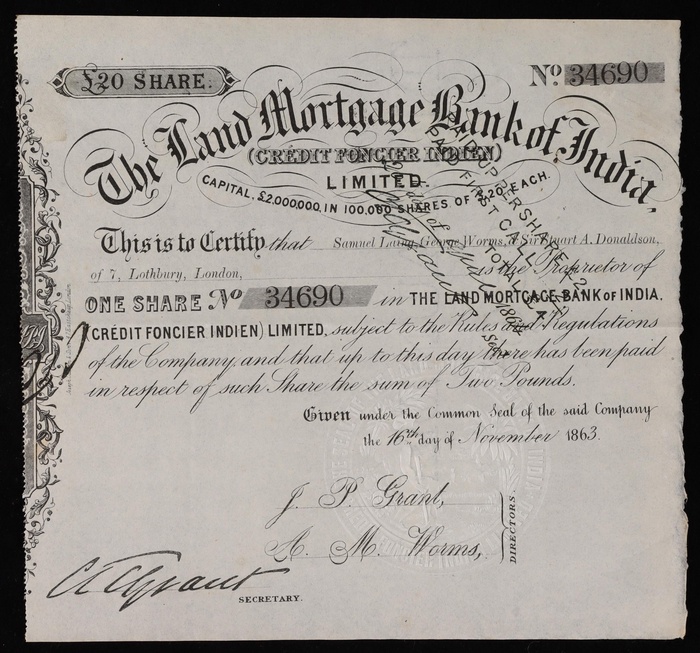 £20 SHARE.
No. 34690
The Land Mortgage Bank of India,
(CRÉDIT FONCIER INDIEN)
LIMITED.
CAPITAL, £2,000,000, IN 100,000 SHARES OF £20 EACH.
This is to Certify that Samuel Laing, George Worms, & Sir Stuart A. Donaldson,
of 7, Lothbury, London, is the Proprietor of
ONE SHARE No 34690 in THE LAND MORTGAGE BANK OF INDIA,
(CRÉDIT FONCIER INDIEN) LIMITED, subject to the Rules and Regulations
of the Company, and that up to this day there has been paid
in respect of such Share the sum of Two Pounds.
Given under the Common Seal of the said Company
the 16th day of November 1863.
J. P. Grant,
A. M. Worms,
DIRECTORS.
SECRETARY.
PER SHARE
FIRST CALL
TOTAL